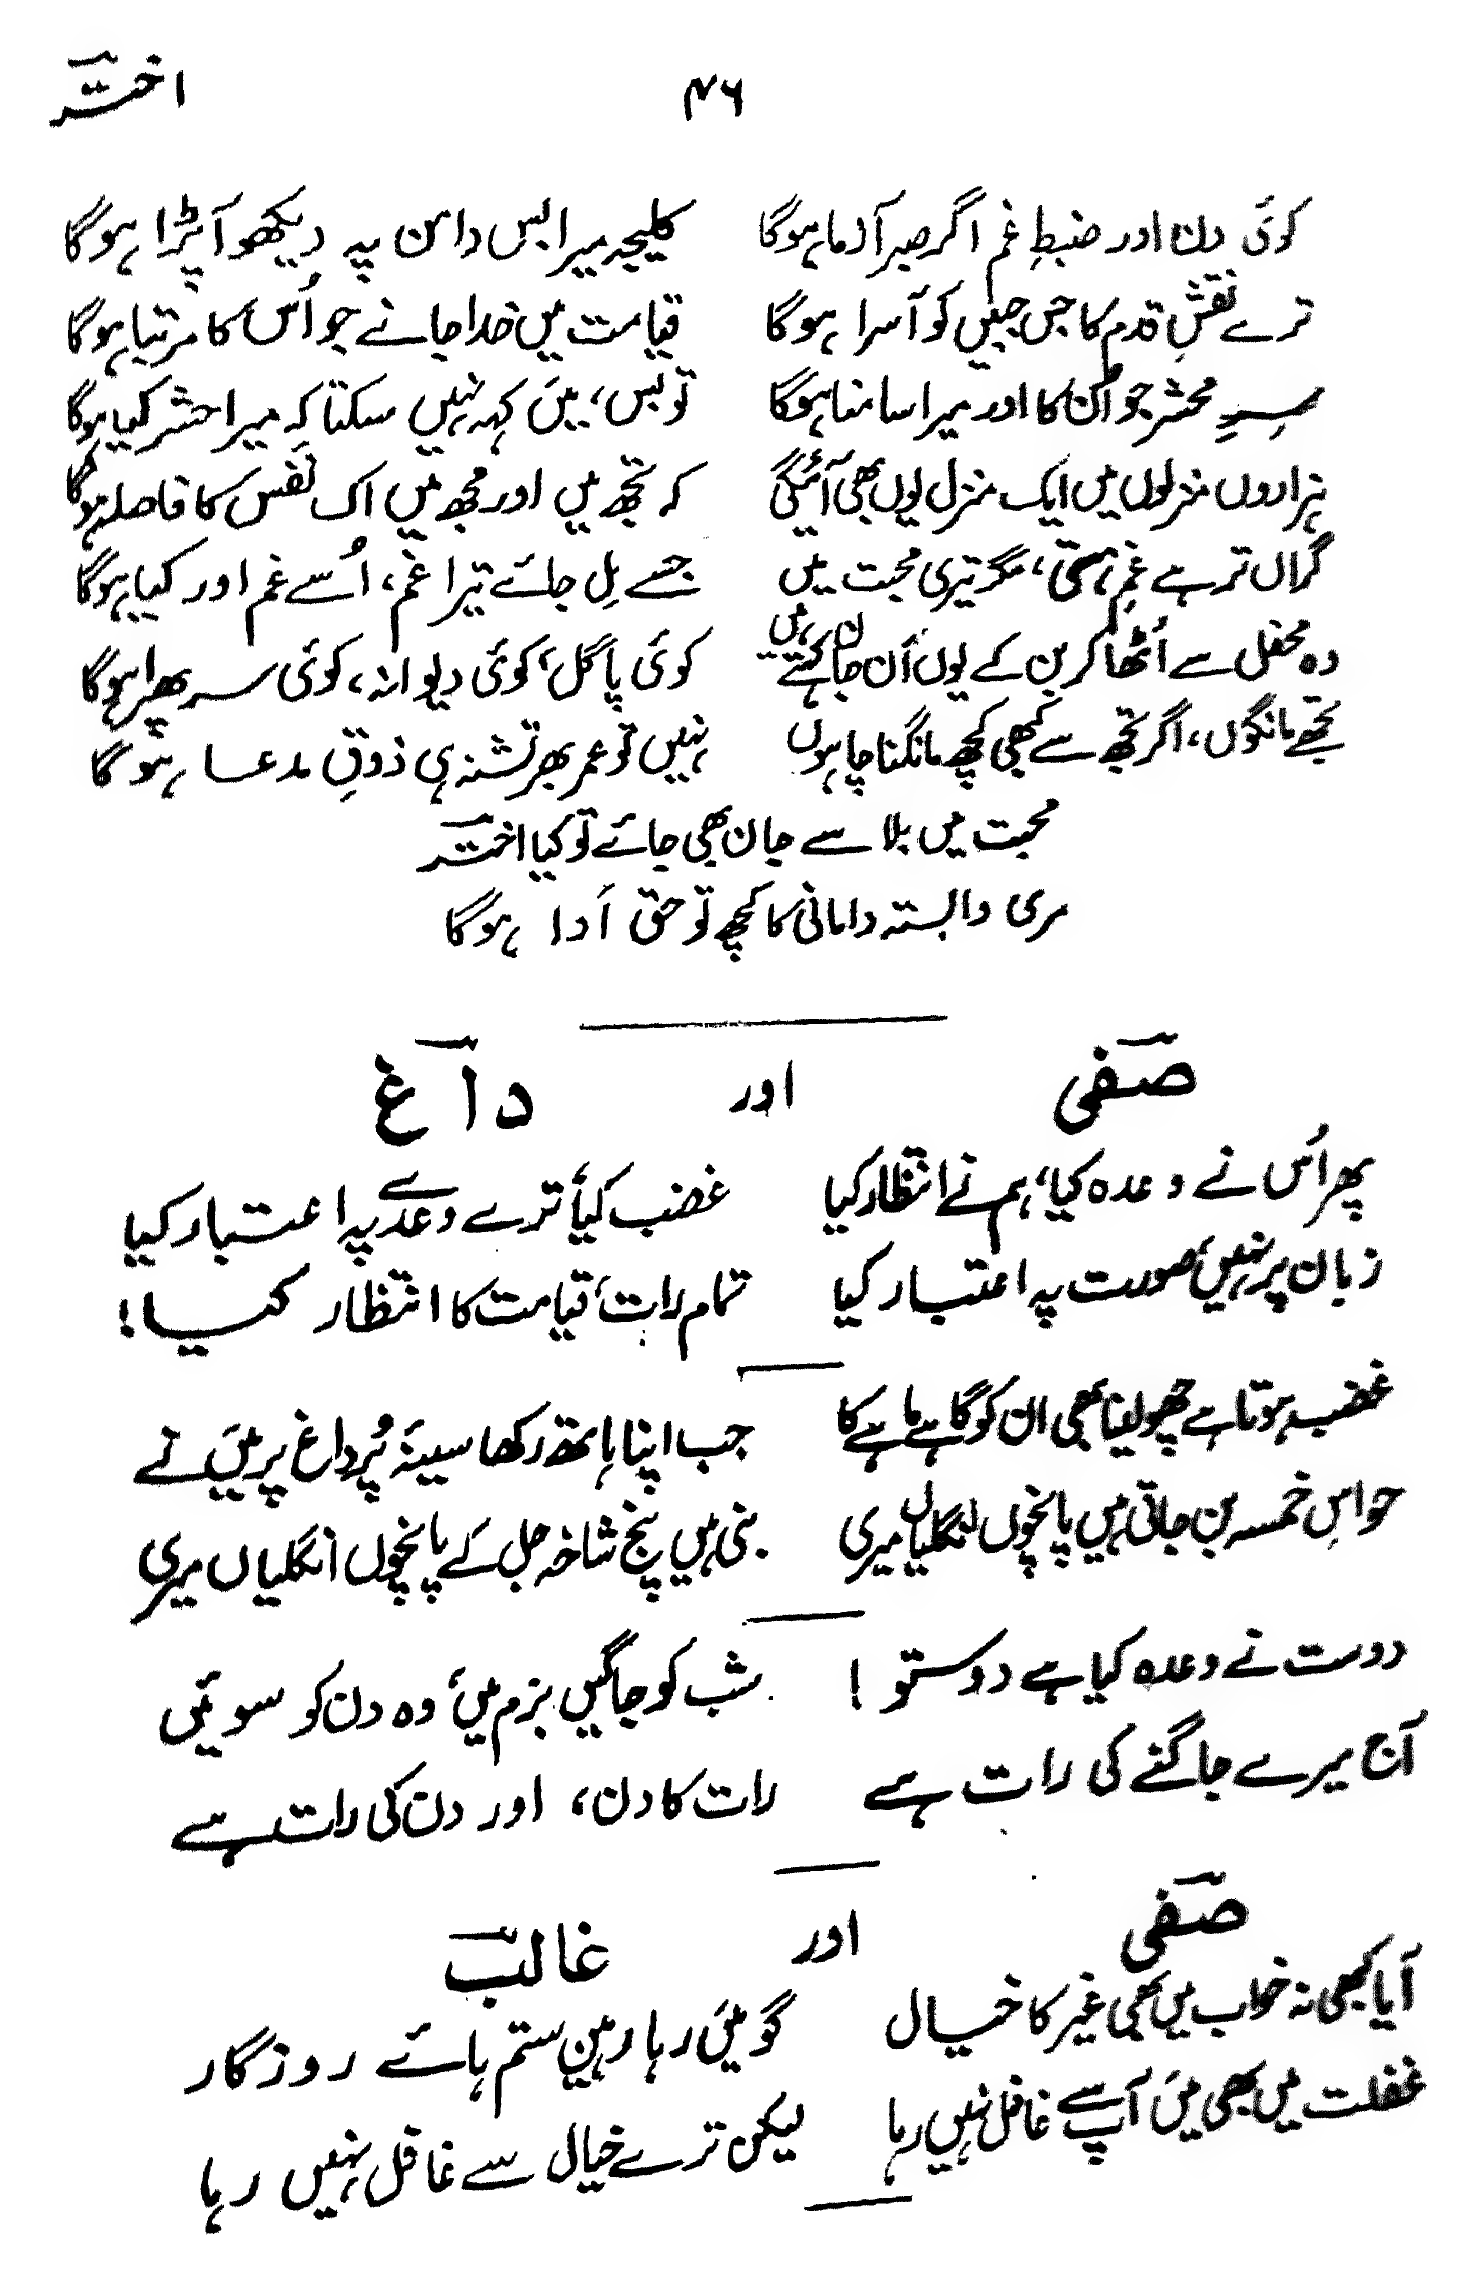 ۴۶ اختر
کوئی دن اور ضبطِ غم اگر صبر آزما ہوگا کلیجہ میرا بس دامن پہ دیکھو آ پڑا ہوگا
ترے نقشِ قدم کا جس جبیں کو آسرا ہوگا قیامت میں خدا جانے جو اُس کا مرتبا ہوگا
سرِ محشر جو اُن کا اور میرا سامنا ہوگا تو بس، میں کہہ نہیں سکتا کہ میرا حشر کیا ہوگا
ہزاروں منزلوں میں ایک منزل یوں بھی آئیگی کہ تجھ میں اور مجھ میں اک نفس کا فاصلہ ہوگا
گراں تر ہے غمِ ہستی، مگر تیری محبت میں جسے مِل جائے تیرا غم، اُسے غم اور کیا ہوگا
وہ محفل سے اُٹھا کر بن کے یوں اَن جان کہتے ہیں کوئی پاگل، کوئی دیوانہ، کوئی سر پھرا ہوگا
تجھے مانگوں، اگر تجھ سے کبھی کچھ مانگنا چاہوں نہیں تو عمر بھر تشنہ ہی ذوقِ مدعا ہوگا
محبت میں بلا سے جان بھی جائے تو کیا اختر
مری وابستہ دامانی کا کچھ تو حق اَدا ہوگا
صفی اور داغ
پھر اُس نے وعدہ کیا، ہم نے انتظار کیا غضب کیا، ترے وعدے پہ اعتبار کیا
زبان پر نہیں، صورت پہ اعتبار کیا تمام رات، قیامت کا انتظار کیا!
غضب ہوتا ہے چھو لینا بھی ان کو گاہے ماہے کا جب اپنا ہاتھ رکھا سینۂ پُر داغ پر میں نے
حواسِ خمسہ بن جاتی ہیں پانچوں انگلیاں میری بنی ہیں پنج شاخہ جل کے پانچوں انگلیاں میری
دوست نے وعدہ کیا ہے دوستو! شب کو جاگیں بزم میں، وہ دن کو سوئیں
آج میرے جاگنے کی رات ہے رات کا دن، اور دن کی رات ہے
صفی اور غالب
آیا کبھی نہ خواب میں بھی غیر کا خیال گو میں رہا رہینِ ستم ہائے روزگار
غفلت میں بھی میں آپ سے غافل نہیں رہا لیکن ترے خیال سے غافل نہیں رہا